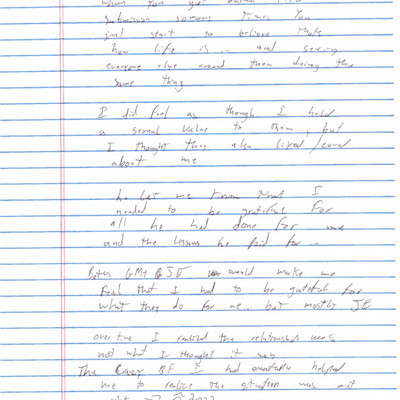 when you get
submission so many times you
just start to believe that's
how life is - and seeing
everyone else around them doing the
same thing
I did feel as though I held
a sexual value to them, but
I thought they also liked/cared
about me
he let me know that I
needed to be grateful for
all he had done for me
and the lessons he paid for -
Both GM & JE would make me
feel that I had to be grateful for
what they do for me.. but mostly JE
over time I realized the relationship was
not what I thought it was
The Crazy BF I had eventually helped
me to realize the situation was not